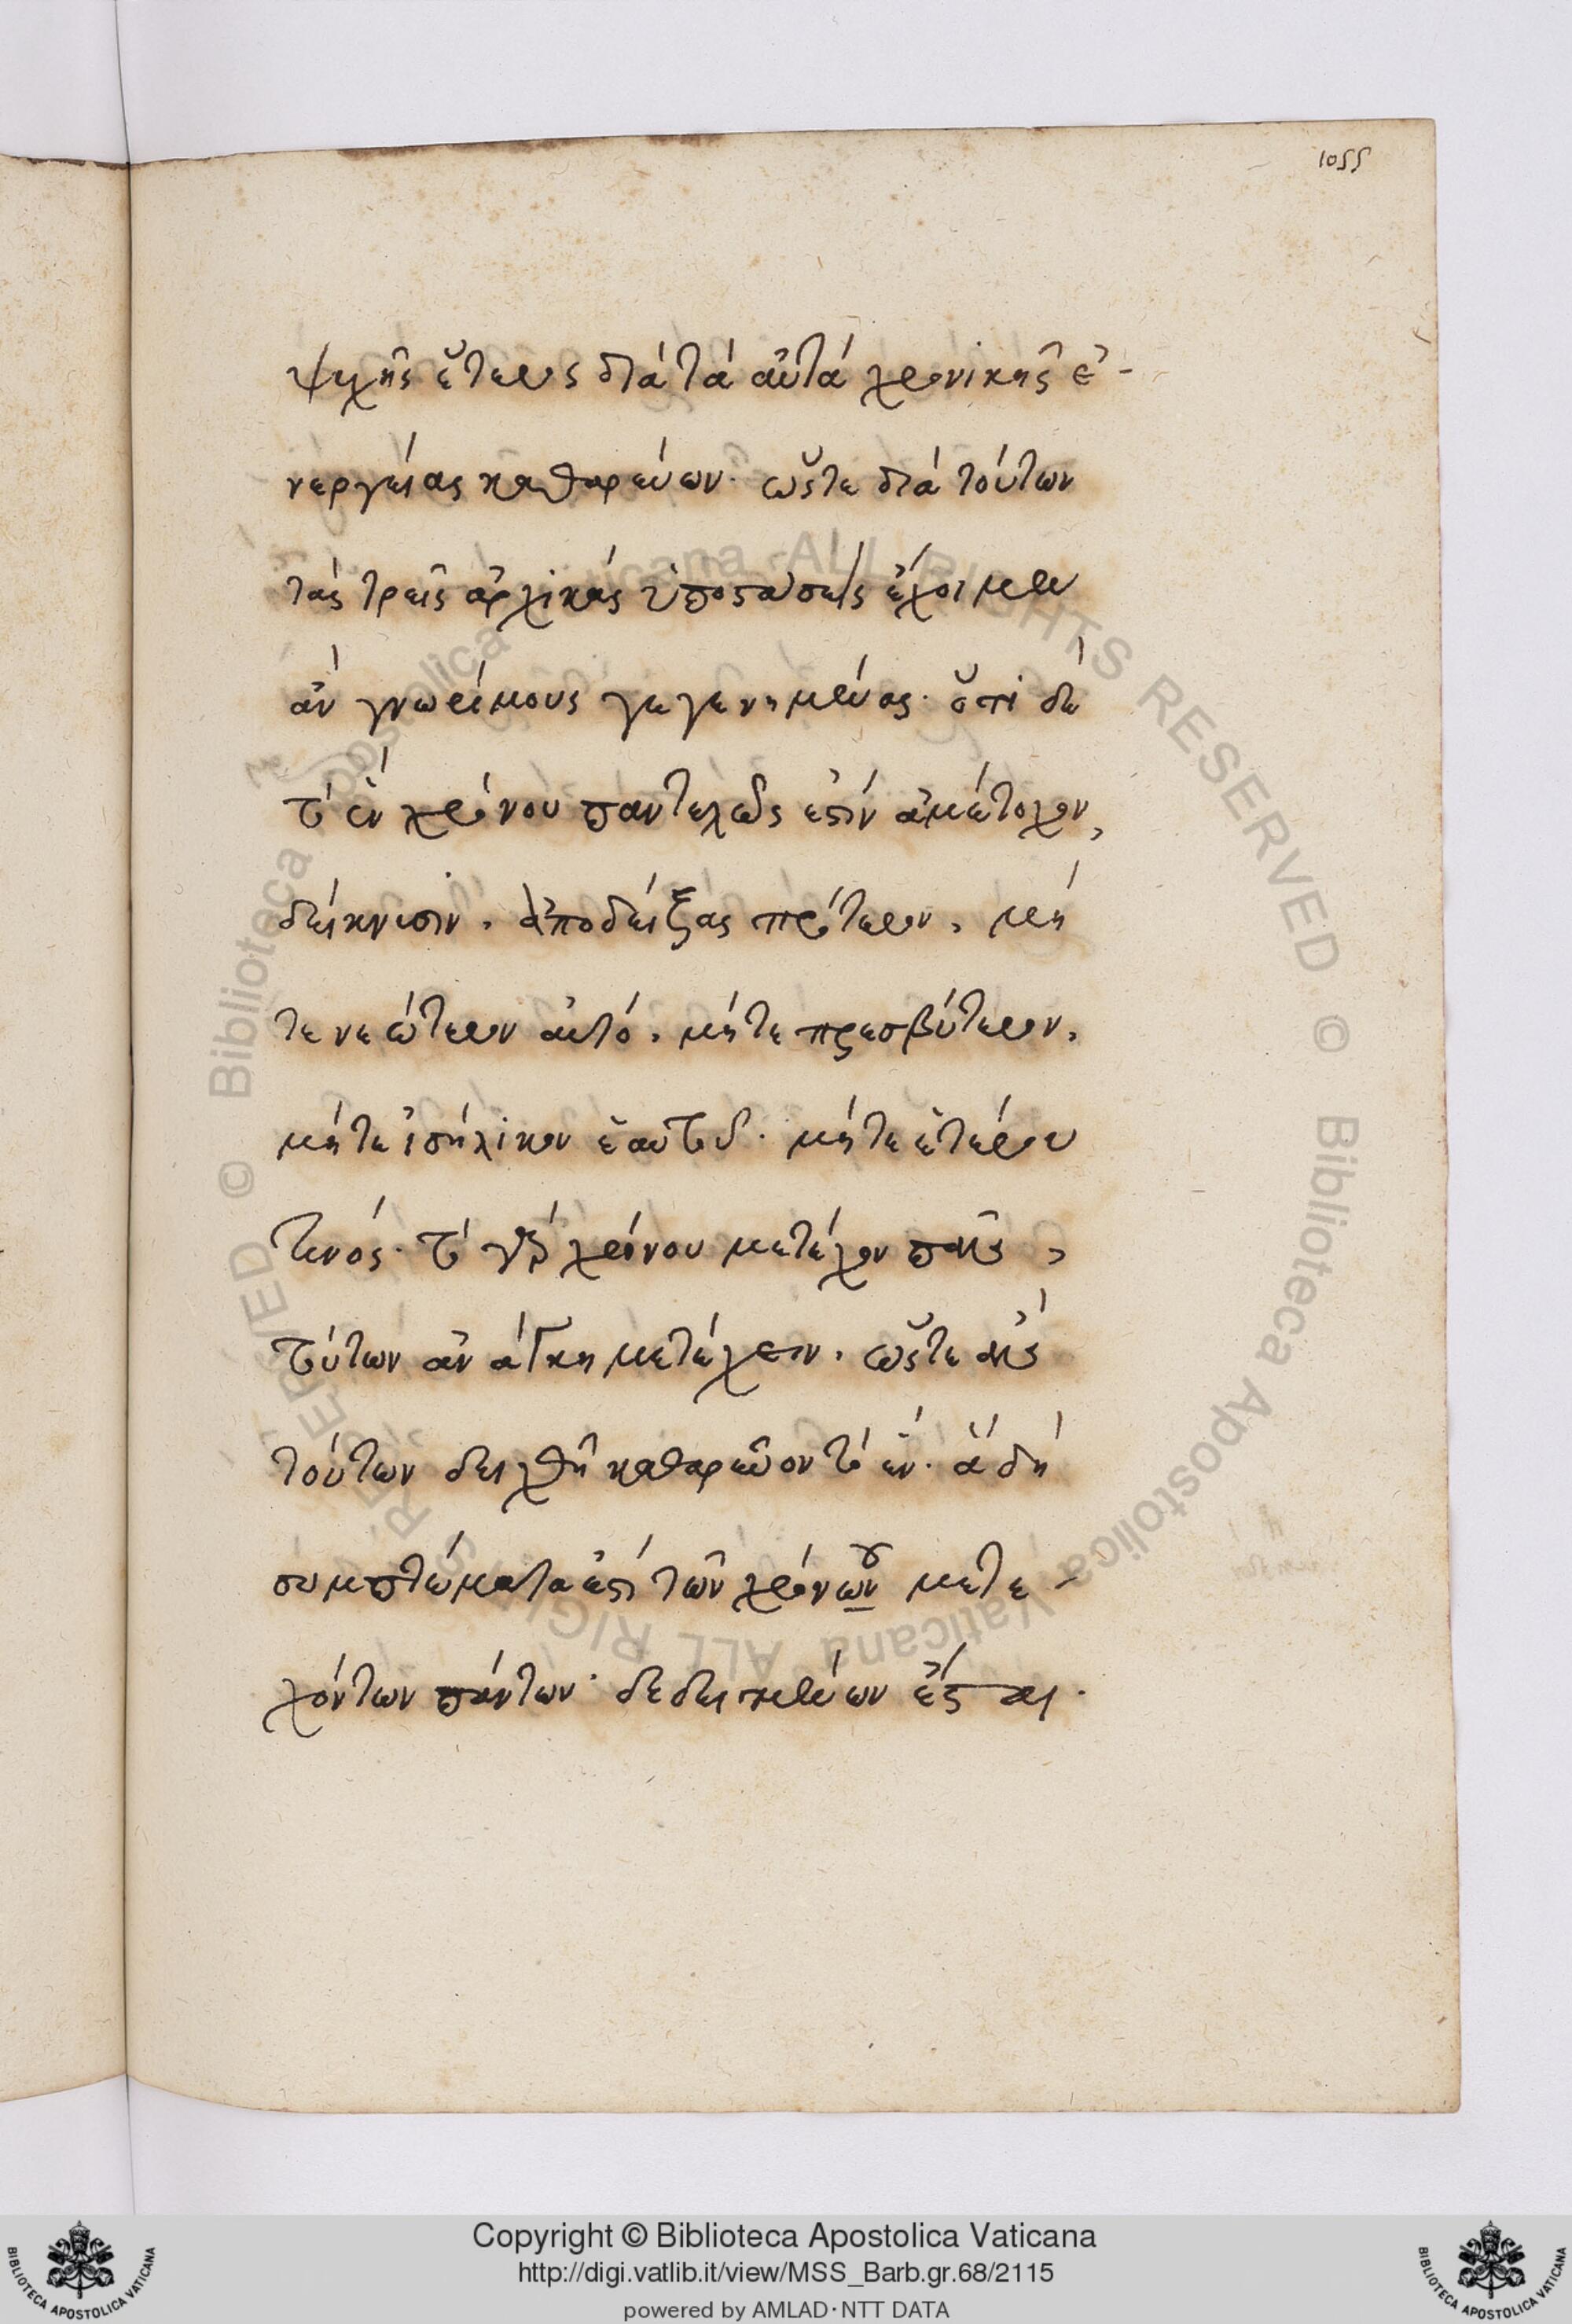 1055
ψυχῆς ἕτερος διὰ τὰ αὐτὰ χρονικῆς ἐ-
νεργείας καθαρεύων. ὥστε διὰ τούτων
τὰς τρεῖς ἀρχικὰς ὑποστάσεις ἔχοιμεν
ἂν γνωρίμους γεγενημένας. ὅτι δὲ
τὸ ἓν χρόνου παντελῶς ἐστὶν ἀμέτοχον,
δείκνυσιν, ἀποδείξας πρότερον, μή
τε νεώτερον αὐτό, μήτε πρεσβύτερον,
μήτε ἰσήλικον ἑαυτοῦ. μήτε ἑτέρου
τινός. τὸ γὰρ χρόνου μετέχον παντὸς,
τούτων ἀνάγκη μετέχειν. ὥστε
τούτων δειχθῆ καθαρεῦον τὸ ἕν. ἃ δὴ
συμπτώματα ἐστὶ τῶν χρόνου μετε-
χόντων πάντων. δεδειγμένων ἔσται.
Copyright © Biblioteca Apostolica Vaticana
http://digi.vatlib.it/view/MSS_Barb.gr.68/2115
powered by AMLAD·NTT DATA
BIBLIOTECA APOSTOLICA VATICANA
BIBLIOTECA APOSTOLICA VATICANA
© Biblioteca Apostolica Vaticana ALL RIGHTS RESERVED © Biblioteca Apostolica Vaticana ALL RIGHTS RESERVED